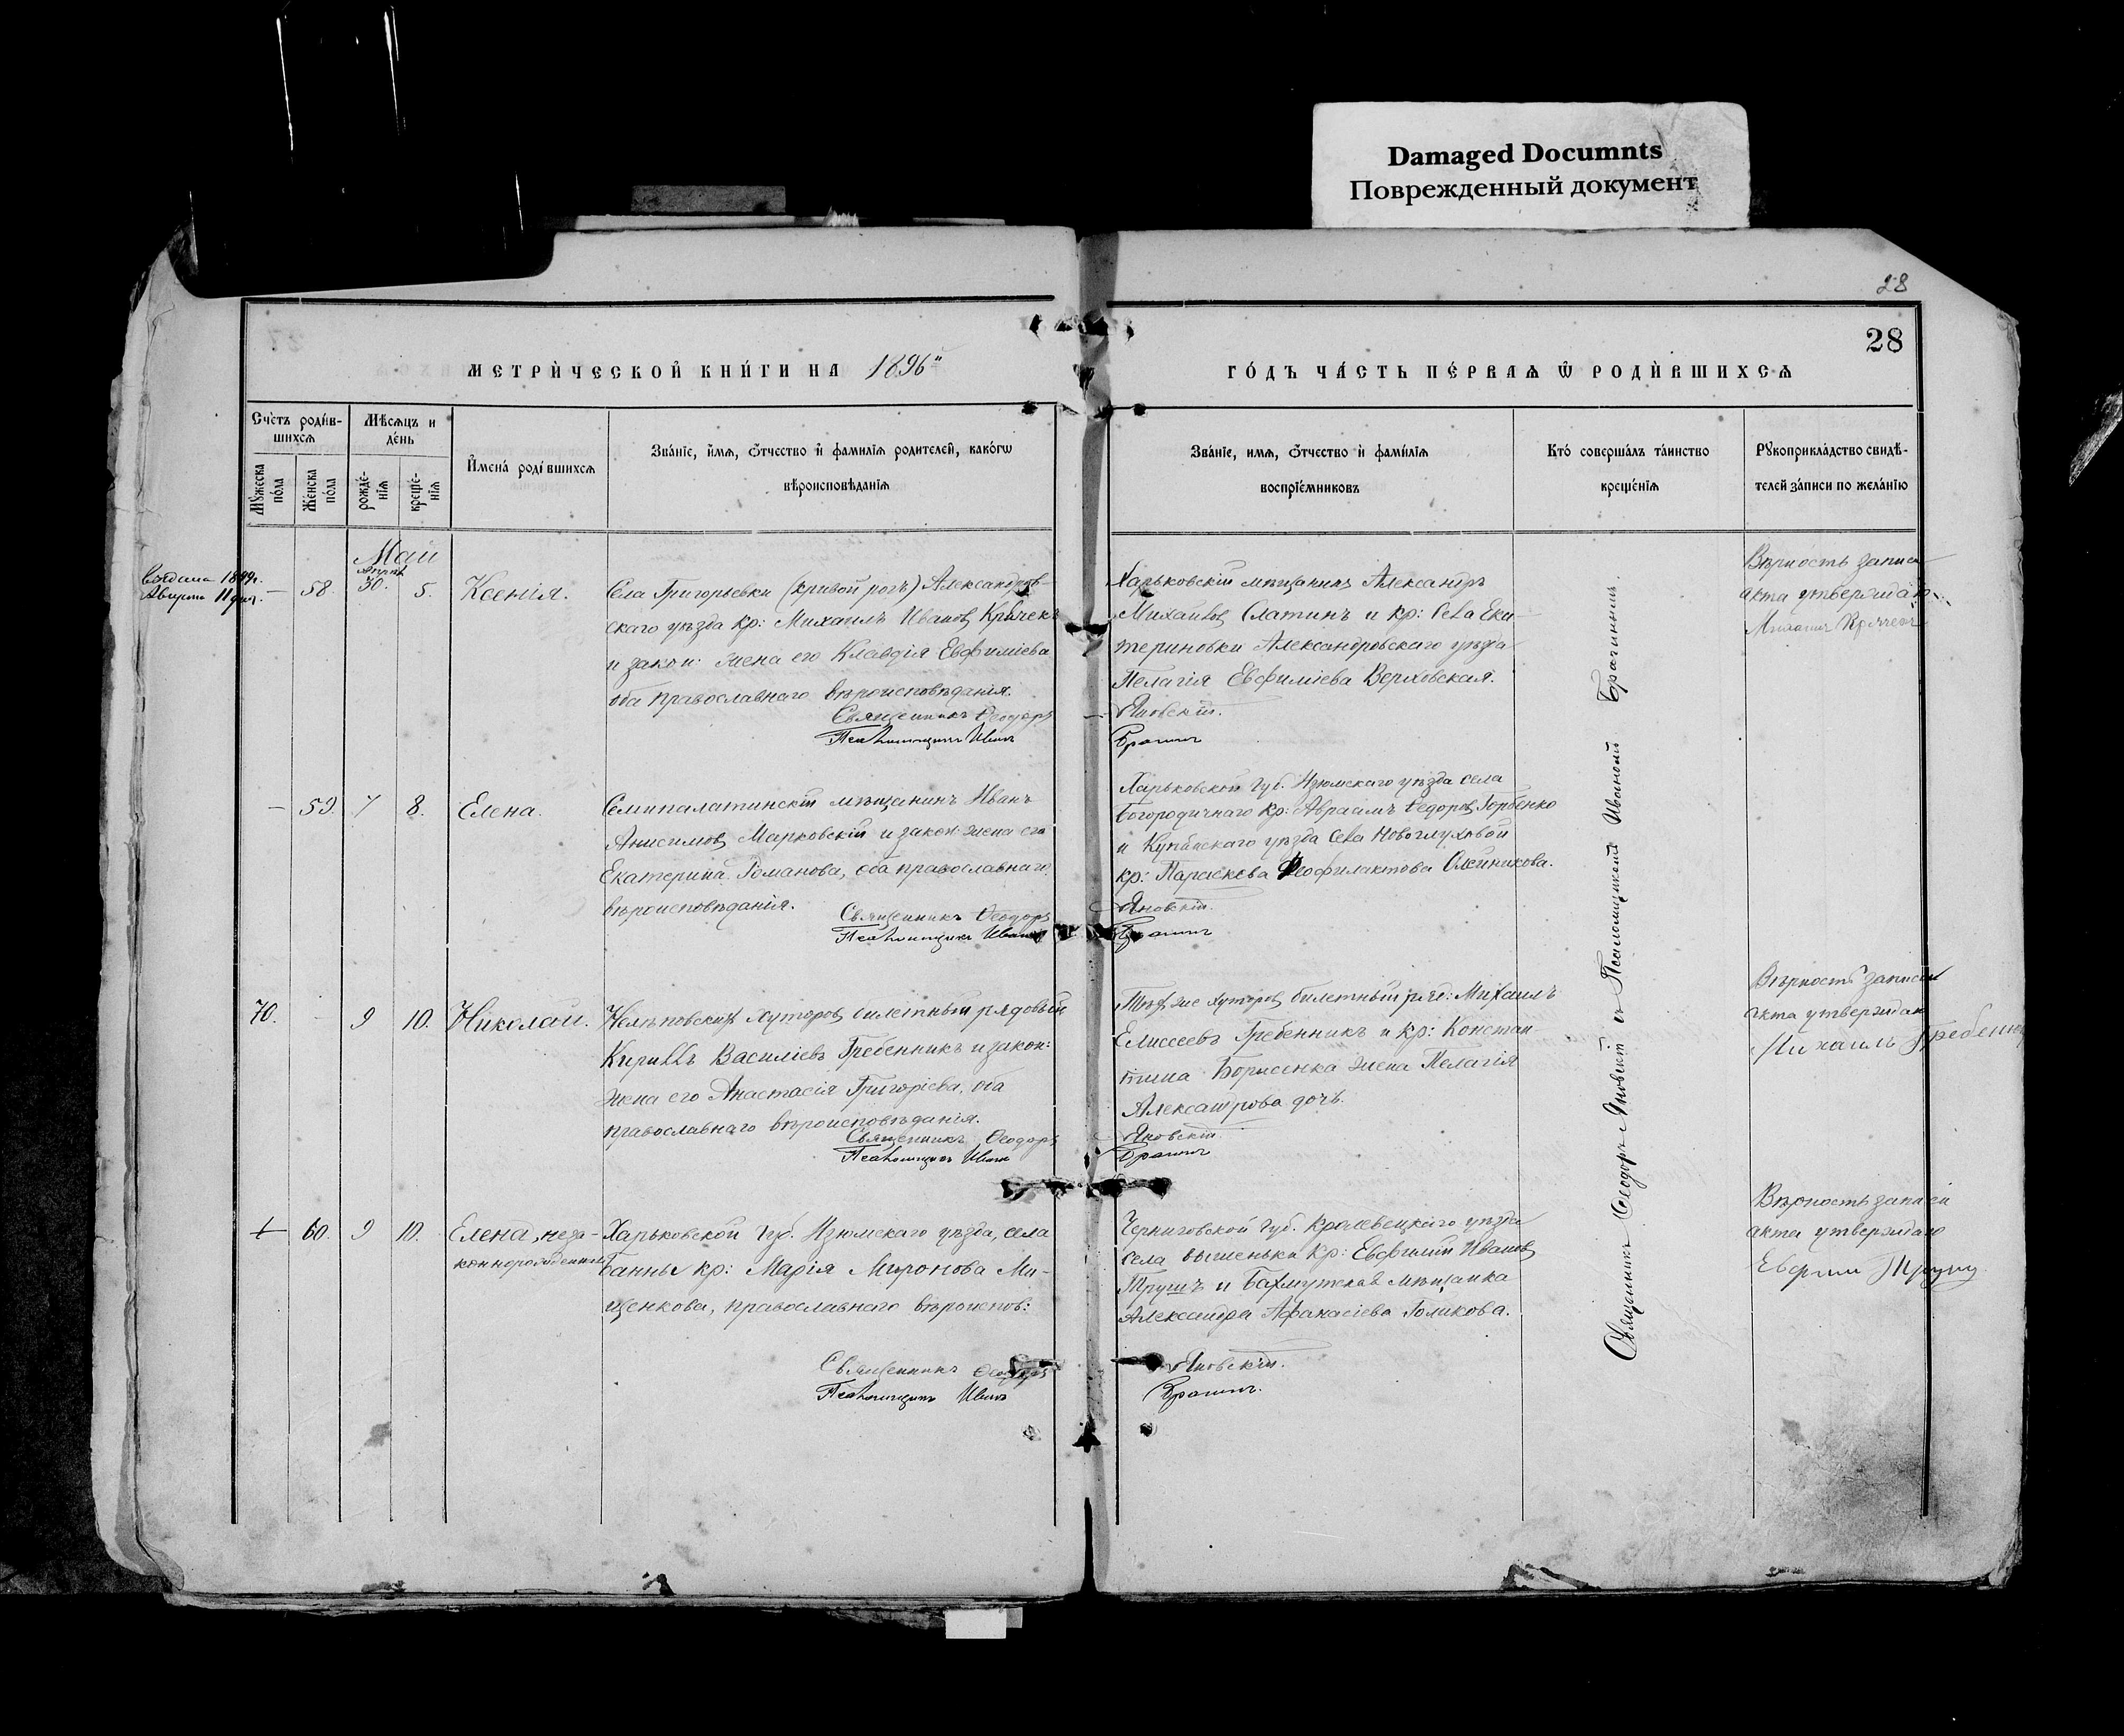 Damaged Documnts
Поврежденный документ
28
28
МЕТРИ́ЧЕСКОЙ КНИ́ГИ НА 1896й
ГО́ДЪ ЧА́СТЬ ПЕ́РВАѦ Ѿ РОДИ́ВШИХСѦ
Сче́тъ роди́в-
шихсѧ
Мꙋ́жеска
по́ла
Же́нска
по́ла
Мѣ́сѧцъ и
де́нь
рожде́-
нїѧ
креще́-
нїѧ
И҆мена́ роди́вшихсѧ
Зва́нїе, и҆́мѧ, ѻ҆́тчество и҆ фамилїѧ родителей, како́гѡ
вѣроисповѣ́данїѧ
Зва́нїе, имѧ, ѻ҆́тчество и҆ фами́лїѧ
воспрїе́мниковъ
Кто́ соверша́лъ та́инство
креще́нїѧ
Рꙋкоприкла́дство свидѣ́-
телей за́писи по жела́нїю
Май
1899г.
Августа 11 дня.
—
58.
Апрѣл
30.
5.
Ксенія.
Села Григорьевки (Кривой рогъ) Александров-
скаго уѣзда кр: Михаилъ Иванов Крючек
и закон: жена его Клавдія Евфиміева
оба православнаго вѣроисповѣданія.
Священникъ Ѳеодоръ
Псаломщикъ Иванъ
Харьковскій мѣщанинъ Александръ
Михайлов Слатинъ и кр: села Ека-
териновки Александровскаго уѣзда
Пелагія Евфиміева Верховская.
Яновскій.
Брагинъ
Вѣрность записи
акта утверждаю
Михаилъ Крючекъ
—
59.
7
8.
Елена.
Семипалатинскій мѣщанинъ Иванъ
Анисимов Марковскій и закон: жена его
Екатерина Романова, оба православнаго
вѣроисповѣданія.
Священникъ Ѳеодоръ
Псаломщикъ Иванъ
Харьковской губ. Изюмскаго уѣзда села
Богородичнаго кр: Авраамъ Ѳедоров Горбенко
и Купянскаго уѣзда села Новоглуховой
кр: Параскева Ѳеофилактова Олейникова.
Яновскій.
Брагинъ
70.
—
9
10.
Николай.
Нелѣповскихъ хуторов билетный рядовый
Кириллъ Василіевъ Гребенникъ и закон:
жена его Анастасія Григоріева, оба
православнаго вѣроисповѣданія.
Священникъ Ѳеодоръ
Псаломщикъ Иванъ
Тѣхъ же хуторов билетный ряд: Михаилъ
Елисеевъ Гребенникъ и кр: Констан
тина Борисенка жена Пелагія
Александрова дочь.
Яновскій
Брагинъ
Вѣрность записи
акта утверждаю
Михаилъ Гребенник
60.
9
10.
Елена, неза-
коннорожденная
Харьковской губ. Изюмскаго уѣзда, села
Банны кр: Марія Миронова Ми-
щенкова, православнаго вѣроиспов:
Священникъ Ѳеодоръ
Псаломщикъ Иванъ
Черниговской губ. Кролевецкаго уѣзда
села Вышеньки кр: Евфимій Иванов
Трушъ и Бахмутская мѣщанка
Александра Афанасіева Голикова.
Яновскій.
Брагинъ.
Вѣрность записи
акта утверждаю
Священникъ Ѳеодоръ Яновскій съ Псаломщикомъ Иваномъ Брагинымъ.